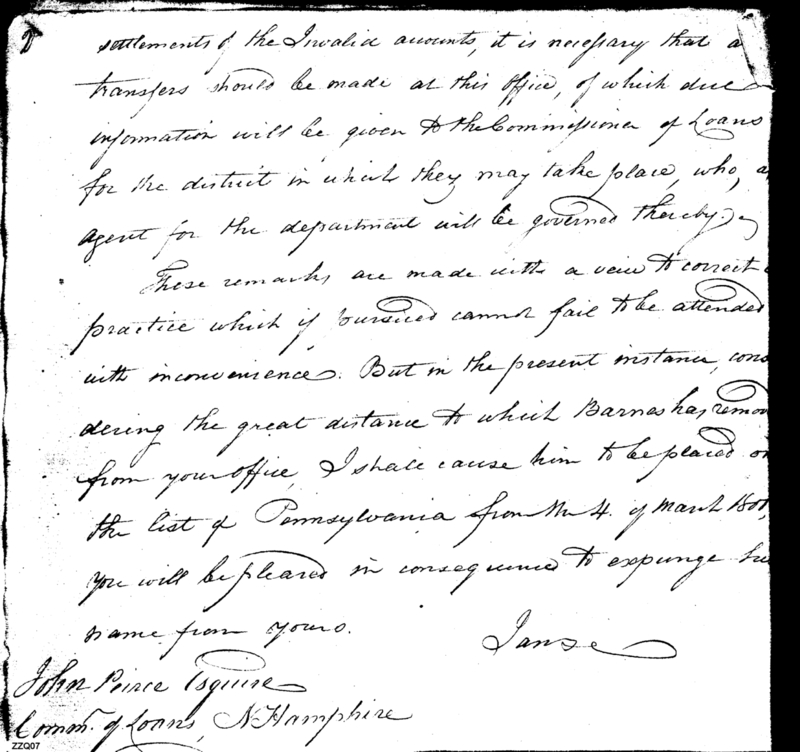 settlements of the Invalid accounts, it is necessary that a
transfers should be made at this Office, of which due
information will be given to the Commissioner of Loans
for the district in which they may take place, who, a
agent for the department will be governed thereby.
These remarks are made with a veiw to correct
practice which if pursued cannot fail to be attended
with inconvenience. But in the present instance, cons
dering the great distance to which Barnes has remov
from your office, I shall cause him to be placed on
the list of Pennsylvania from the 4. of March 1801,
you will be pleased in consequence to expunge his
name from yours.
I am Sir
John Peirce Esquire
Commr. of Loans, N Hampshire
ZZQ07